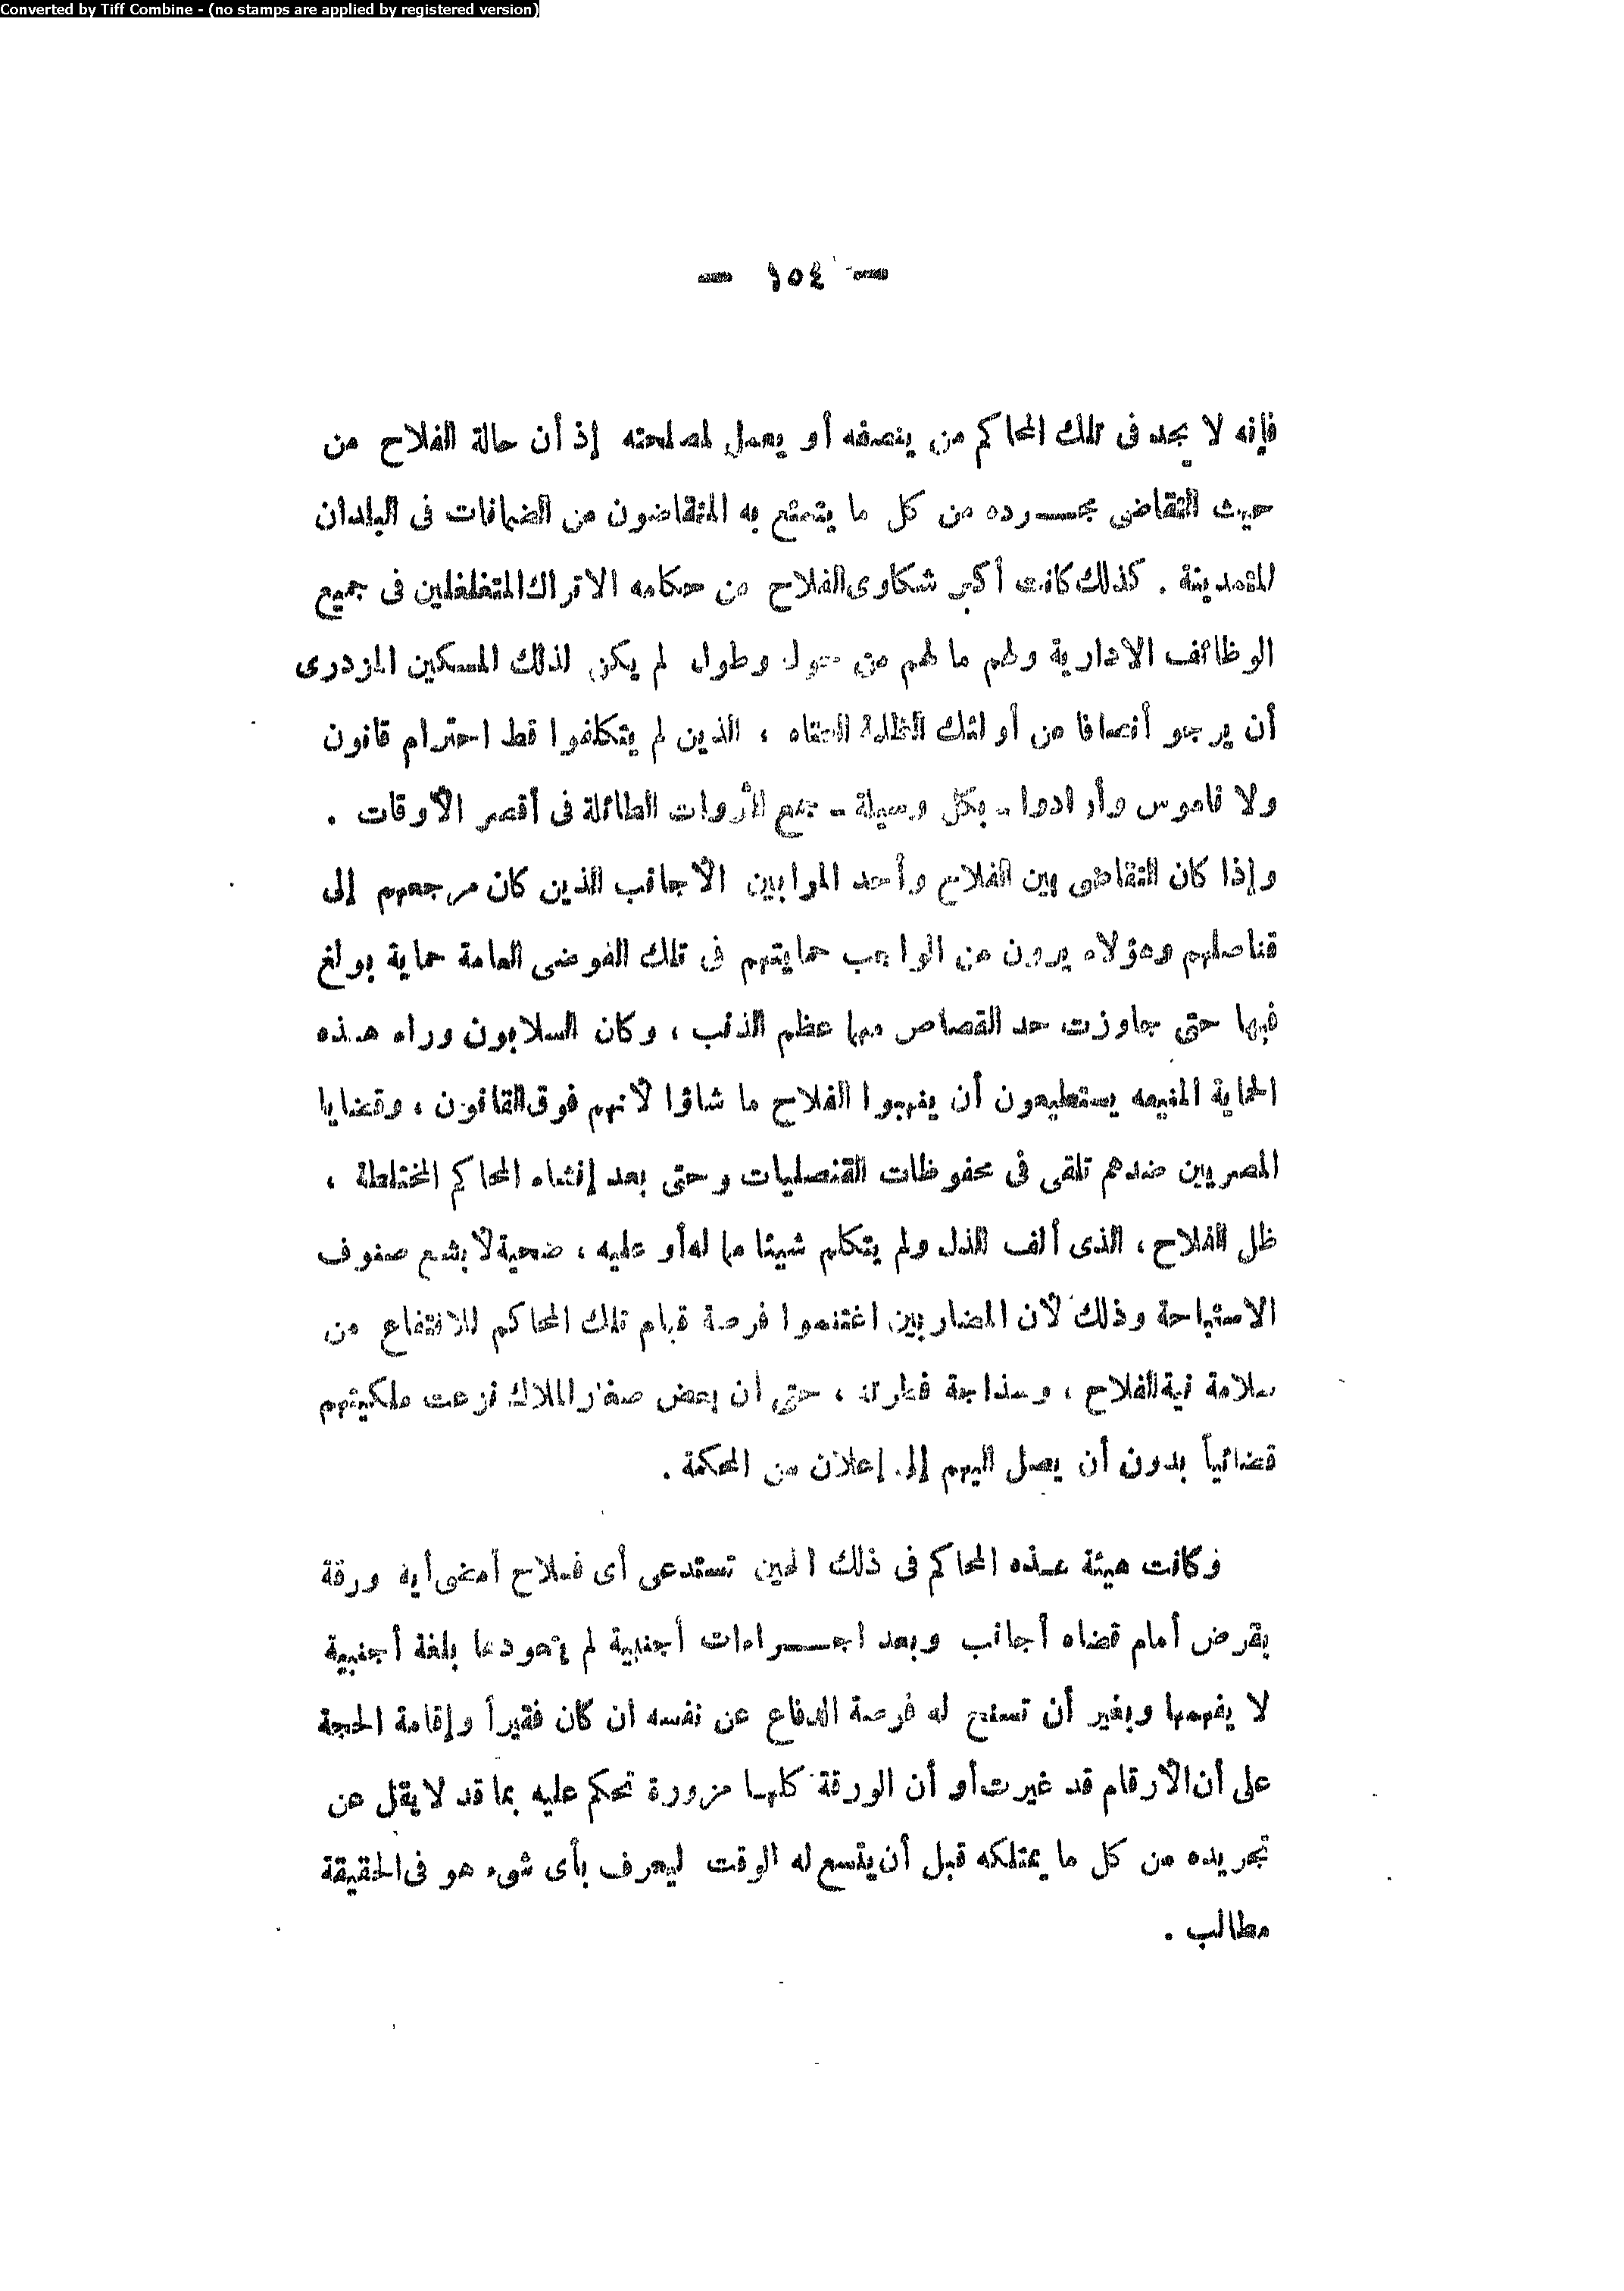 Converted by Tiff Combine - (no stamps are applied by registered version)
— ١٥٤ —
فإنه لا يجد فى تلك المحاكم من ينصفه أو يعمل لمصلحته إذ أن حالة الفلاح من
حيث التقاضى مجــرده من كل ما يتمتع به المتقاضون من الضمانات فى البلدان
المتمدينة . كذلك كانت أكبر شكاوى الفلاح من حكامه الاتراك المتغلغلين فى جميع
الوظائف الادارية ولهم ما لهم من حول وطول لم يكن لذلك المسكين المزدرى
أن يرجو أنصافا من أولئك الظلمة العتاه ، الذين لم يتكلفوا قط احترام قانون
ولا ناموس وأرادوا ـ بكل وسيلة ـ جمع الثروات الطائلة فى أقصر الأوقات .
وإذا كان التقاضى بين الفلاح وأحد المرابين الأجانب الذين كان مرجعهم إلى
قناصلهم وهؤلاء يرون من الواجب حمايتهم فى تلك الفوضى العامة حماية بولغ
فيها حتى جاوزت حد القصاص مهما عظم الذنب ، وكان السلابون وراء هـذه
الحماية المنيعه يستطيعون أن ينهبوا الفلاح ما شاؤا لأنهم فوق القانون ، وقضايا
المصريين ضدهم تلقى فى محفوظات القنصليات وحتى بعد إنشاء المحاكم المختلطة ،
ظل الفلاح ، الذى ألف الذل ولم يتكلم شيئا مما له أو عليه ، ضحية لأبشع صنوف
الاستباحة وذلك لأن المضاربين اغتنموا فرصة قيام تلك المحاكم للانتفاع من
سلامة نية الفلاح ، وسذاجة فطرته ، حتى أن بعض صغار الملاك نزعت ملكيتهم
قضائياً بدون أن يصل اليهم إلى إعلان من المحكمة .
وكانت هيئة هـذه المحاكم فى ذلك الحين تستدعى أى فـلاح أمضى أية ورقة
بقرض أمام قضاه أجانب وبعد اجــراءات أجنبية لم يتعودها بلغة أجنبية
لا يفهمها وبغير أن تسنح له فرصة الدفاع عن نفسه ان كان فقيراً وإقامة الحجة
على أن الأرقام قد غيرت أو أن الورقة كلهـا مزورة تحكم عليه بما قد لا يقل عن
تجريده من كل ما يمتلكه قبل أن يتسع له الوقت ليعرف بأى شىء هو فى الحقيقة
مطالب .